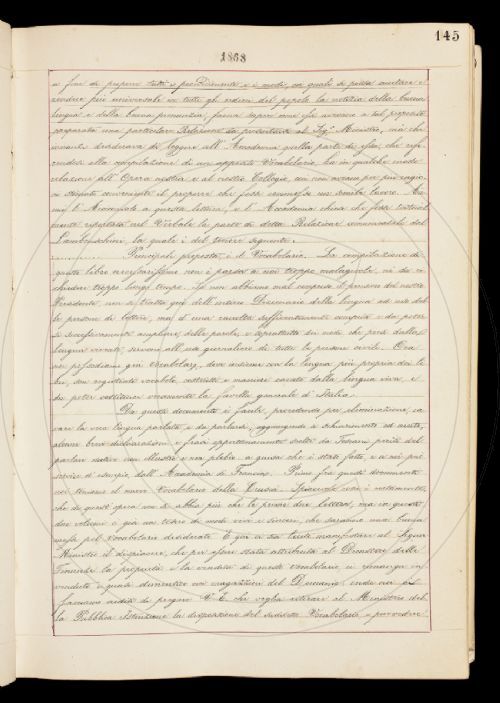 145
1868
a fine di proporre tutti i provvedimenti e i modi, coi quali si possa aiutare e
rendere più universale in tutti gli ordini del popolo la notizia della buona
lingua e della buona pronunzia, faceva sapere come egli avesse a tal proposito
preparata una particolare Relazione da presentarsi al Sig. Ministro, ma che
innanzi desiderava di leggere all'Accademia quella parte di essa, che rife-
rendosi alla compilazione di un apposito Vocabolario, ha in qualche modo
relazione all'Opera nostra e al nostro Collegio, cui non aveva per più ragio-
ni stimato conveniente il proporre che fosse commesso un simile lavoro.
l'Accademia chiese che fosse testual-
mente riportata nel Verbale la parte di detta Relazione comunicatale dal
Lambruschini, la quale è del tenore seguente:
Principali proposte è il Vocabolario. La compilazione di
questo libro necessarissimo non è parsa a noi troppo malagevole, nè da ri-
chiedere troppo lungo tempo. Se non abbiamo mal compreso il pensiero del nostro
Presidente, non si tratta già dell'intiero Dizionario della lingua ad uso del-
le persone di lettere, ma d'una raccolta sufficientemente compiuta e da poter-
si successivamente ampliare, delle parole, e soprattutto dei modi che presi dalla
lingua vivente, servano all'uso giornaliero di tutte le persone civili. Ora
noi possediamo già Vocabolarj, dove insieme con la lingua più propria dei li-
bri, son registrati vocaboli, costrutti e maniere cavate dalla lingua viva, e
da poter costituire veramente la favella generale d'Italia.
Da questi documenti è facile, procedendo per eliminazione, ca-
vare la vera lingua parlata, e da parlarsi, aggiungendo a schiarimento ed aiuto,
alcune brevi dichiarazioni, e frasi opportunamente scelte da Toscani periti del
parlare nativo non illustre e non plebeo, a guisa che è stato fatto, e a noi può
servire d'esempio, dall'Accademia di Francia. Primo fra questi documenti
noi teniamo il nuovo Vocabolario della Crusca. Spiacevole cosa è certamente,
che di quest'opera non si abbia più che le prime due lettere, ma in questi
due volumi è già un tesoro di modi vivi e sinceri, che saranno una buona
messe pel Vocabolario desiderato. E qui ci sia lecito manifestare al Signor
Ministro il dispiacere, che per essere stata attribuita al Demanio delle
Finanze la proprietà e la vendita di questo Vocabolario, ei rimanga in-
venduto e quasi dimenticato nei magazzini del Demanio; onde noi ci
facciamo arditi di pregare V. E. che voglia ottenere al Ministero del-
la Pubblica Istruzione la disposizione del suddetto Vocabolario, e provvedere